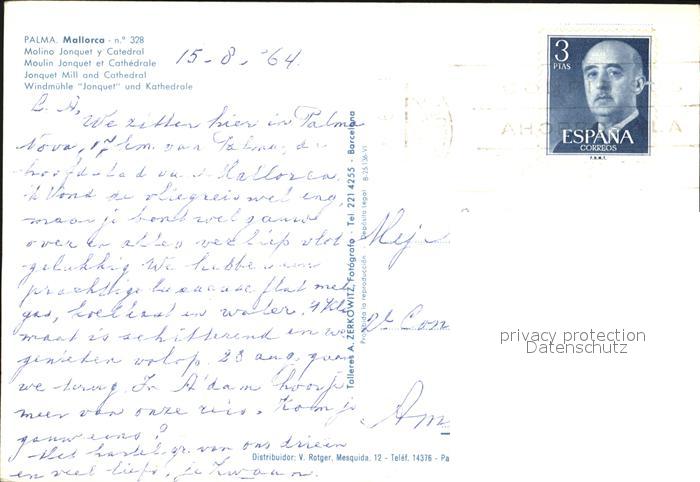 PALMA. Mallorca - n.º 328
Molino Jonquet y Catedral
Moulin Jonquet et Cathédrale
Jonquet Mill and Cathedral
Windmühle "Jonquet" und Kathedrale
15-8-'64
3
PTAS
ESPAÑA
CORREOS
F.N.M.T.
L. A,
We zitten hier in Palma
Nova, 17 km. van Palma, de
hoofdstad van Mallorca.
'k Vond de vliegreis wel eng
maar je bent wel gauw
over en alles verliep vlot
gelukkig. We hebben een
prachtige flat met
gas, en water. 't Kli
maat is schitterend en we
genieten volop. 23 aug. gaan
we terug. In A'dam hoor je
meer van onze reis. Kom je
gauw eens?
Met hartel. gr. van ons drieën
en veel liefs, je
Meje
Con
Am
Talleres A. ZERKOWITZ, Fotógrafo - Tel 221 4255 - Barcelona
Prohibida la reproducción Depósito Legal B-25136-VI
Distribuidor: V. Rotger, Mesquida, 12 - Teléf. 14376 - Pa
privacy protection
Datenschutz